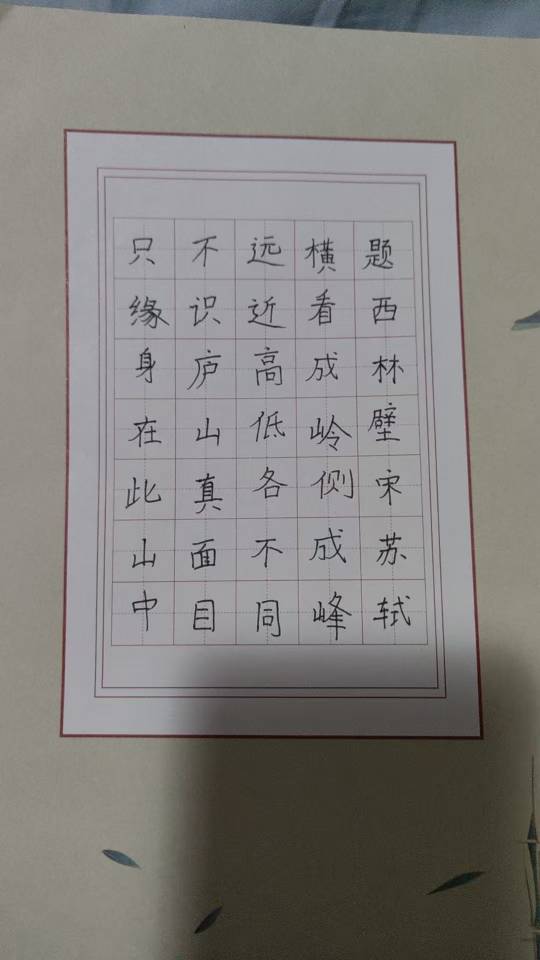 题西林壁宋苏轼
横看成岭侧成峰
远近高低各不同
不识庐山真面目
只缘身在此山中